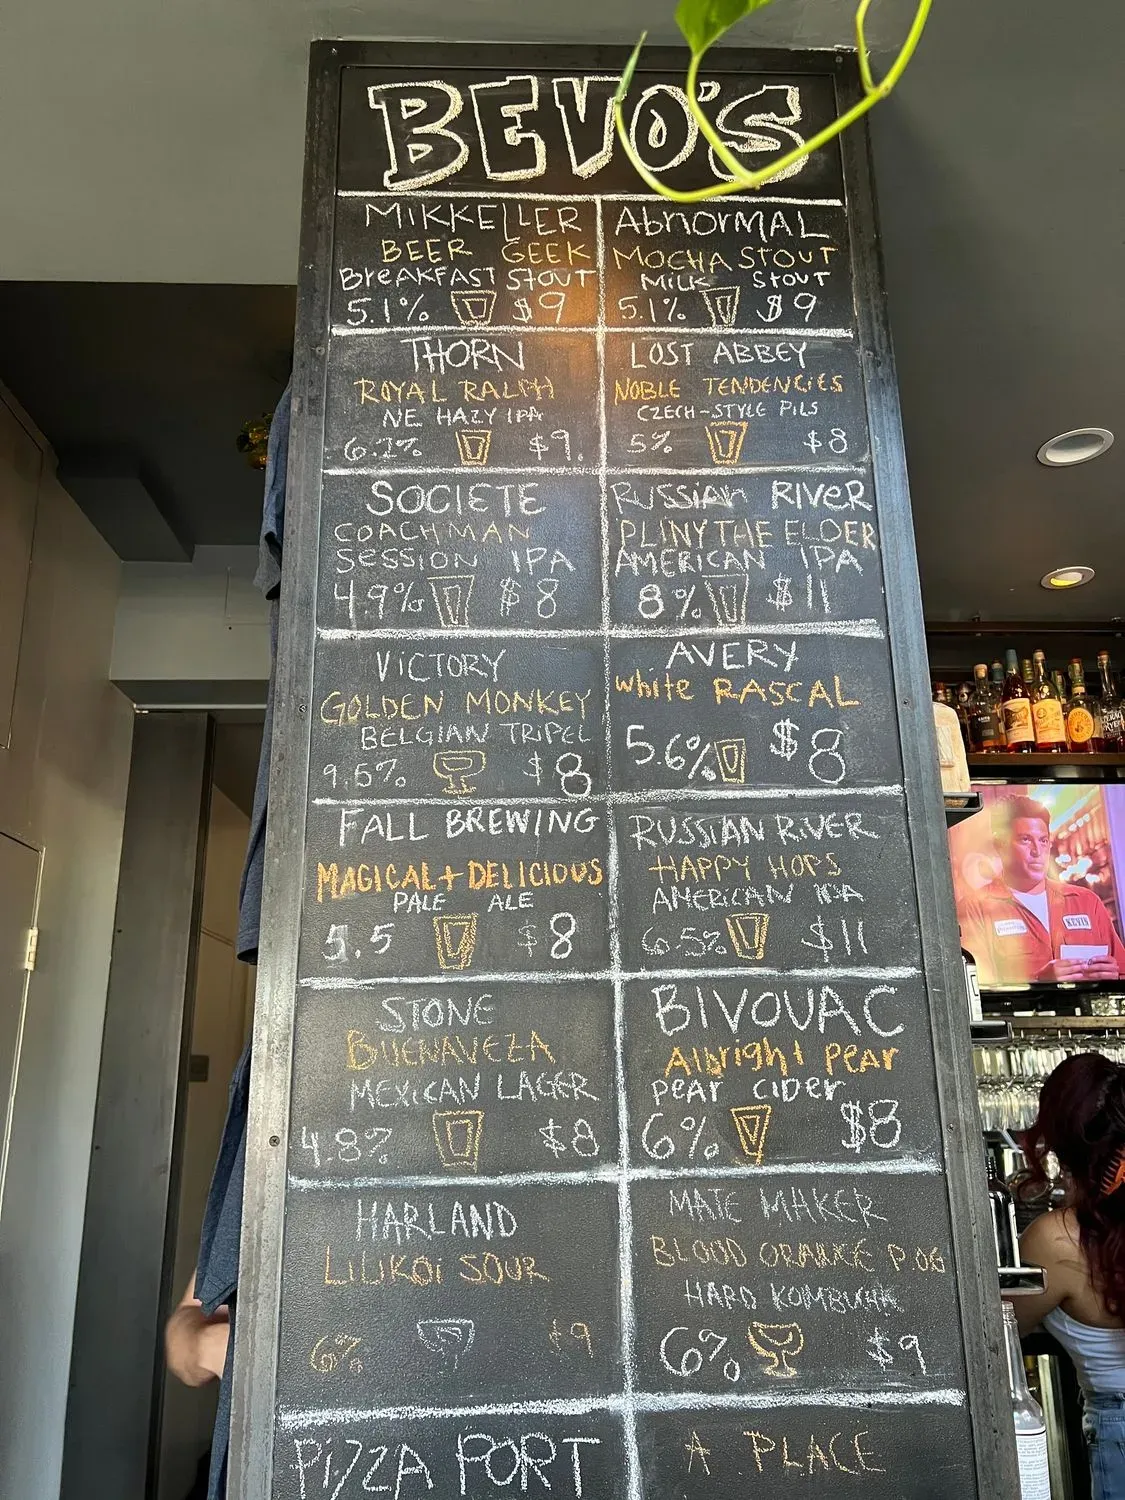 BEVO'S
MIKKELLER
BEER GEEK
BREAKFAST STOUT
5.1% $9
Abnormal
MOCHA STOUT
MILK STOUT
5.1% $9
THORN
ROYAL RALPH
NE HAZY IPA
$9.
LOST ABBEY
NOBLE TENDENCIES
CZECH-STYLE PILS
5% $8
SOCIETE
COACHMAN
SESSION IPA
4.9% $8
RUSSIAN RIVER
PLINY THE ELDER
AMERICAN IPA
8% $11
VICTORY
GOLDEN MONKEY
BELGIAN TRIPEL
9.5% $8
AVERY
white RASCAL
5.6% $8
FALL BREWING
MAGICAL + DELICIOUS
PALE ALE
5.5 $8
RUSSIAN RIVER
HAPPY HOPS
AMERICAN IPA
6.5% $11
STONE
BUENAVEZA
MEXICAN LAGER
4.8% $8
BIVOUAC
Albright pear
pear cider
6% $8
HARLAND
LILIKOI SOUR
6% $9
MATE MAKER
BLOOD ORANGE P.OG
HARD KOMBUCHA
6% $9
PIZZA PORT
A PLACE
KEVIN